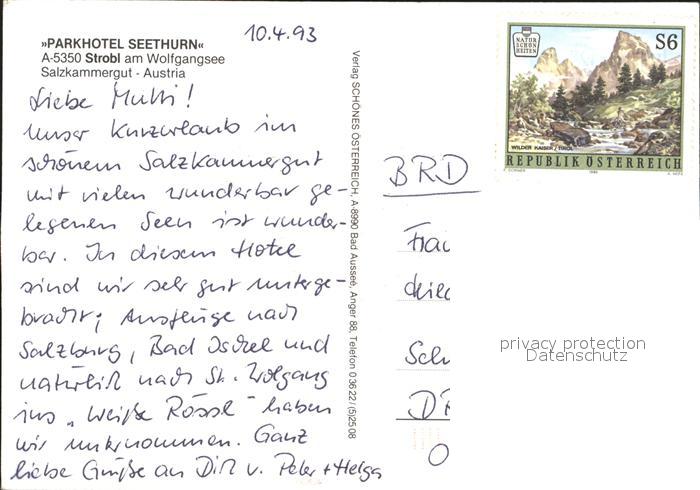 10.4.93
»PARKHOTEL SEETHURN«
A-5350 Strobl am Wolfgangsee
Salzkammergut - Austria
Liebe Mutti!
unser Kurzurlaub im
schönem Salzkammergut
mit vielen wunderbar ge-
legenen Seen ist wunder-
bar. In diesem Hotel
sind wir sehr gut unterge-
bracht; Ausflüge nach
Salzburg, Bad Ischel und
natürlich nach St. Wolfgang
ins „Weiße Rössl" haben
wir unternommen. Ganz
liebe Grüße an Dich v. Peter + Helga
Verlag SCHÖNES ÖSTERREICH, A-8990 Bad Aussee, Anger 88, Telefon 0 36 22 / (5)25 08
NATUR
SCHÖN
HEITEN
S6
WILDER KAISER / TIROL
REPUBLIK ÖSTERREICH
BRD
Frau
Sch
D
O
privacy protection
Datenschutz